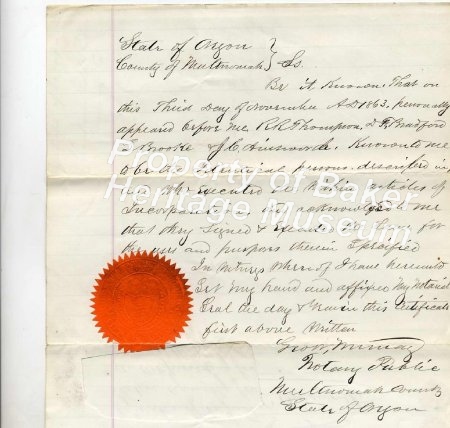 State of Oregon }
County of Multnomah } Ss.
Be it Known, That on
this Third Day of November A.D 1863, personally
appeared before me R.R. Thompson, D F Bradford
Brooke & J.C. Ainsworth. Known to me
to be the persons described in
and who Executed the within articles of
Incorporation and acknowledged to me
that they Signed & Executed the for
the uses and purposes therein Specified
In Witness Whereof I have hereunto
Set my hand and affixed my Notarial
Seal the day & Year in this Certificate
first above Written
Notary Public
Multnomah County
State of Oregon
Property of Baker
Heritage Museum